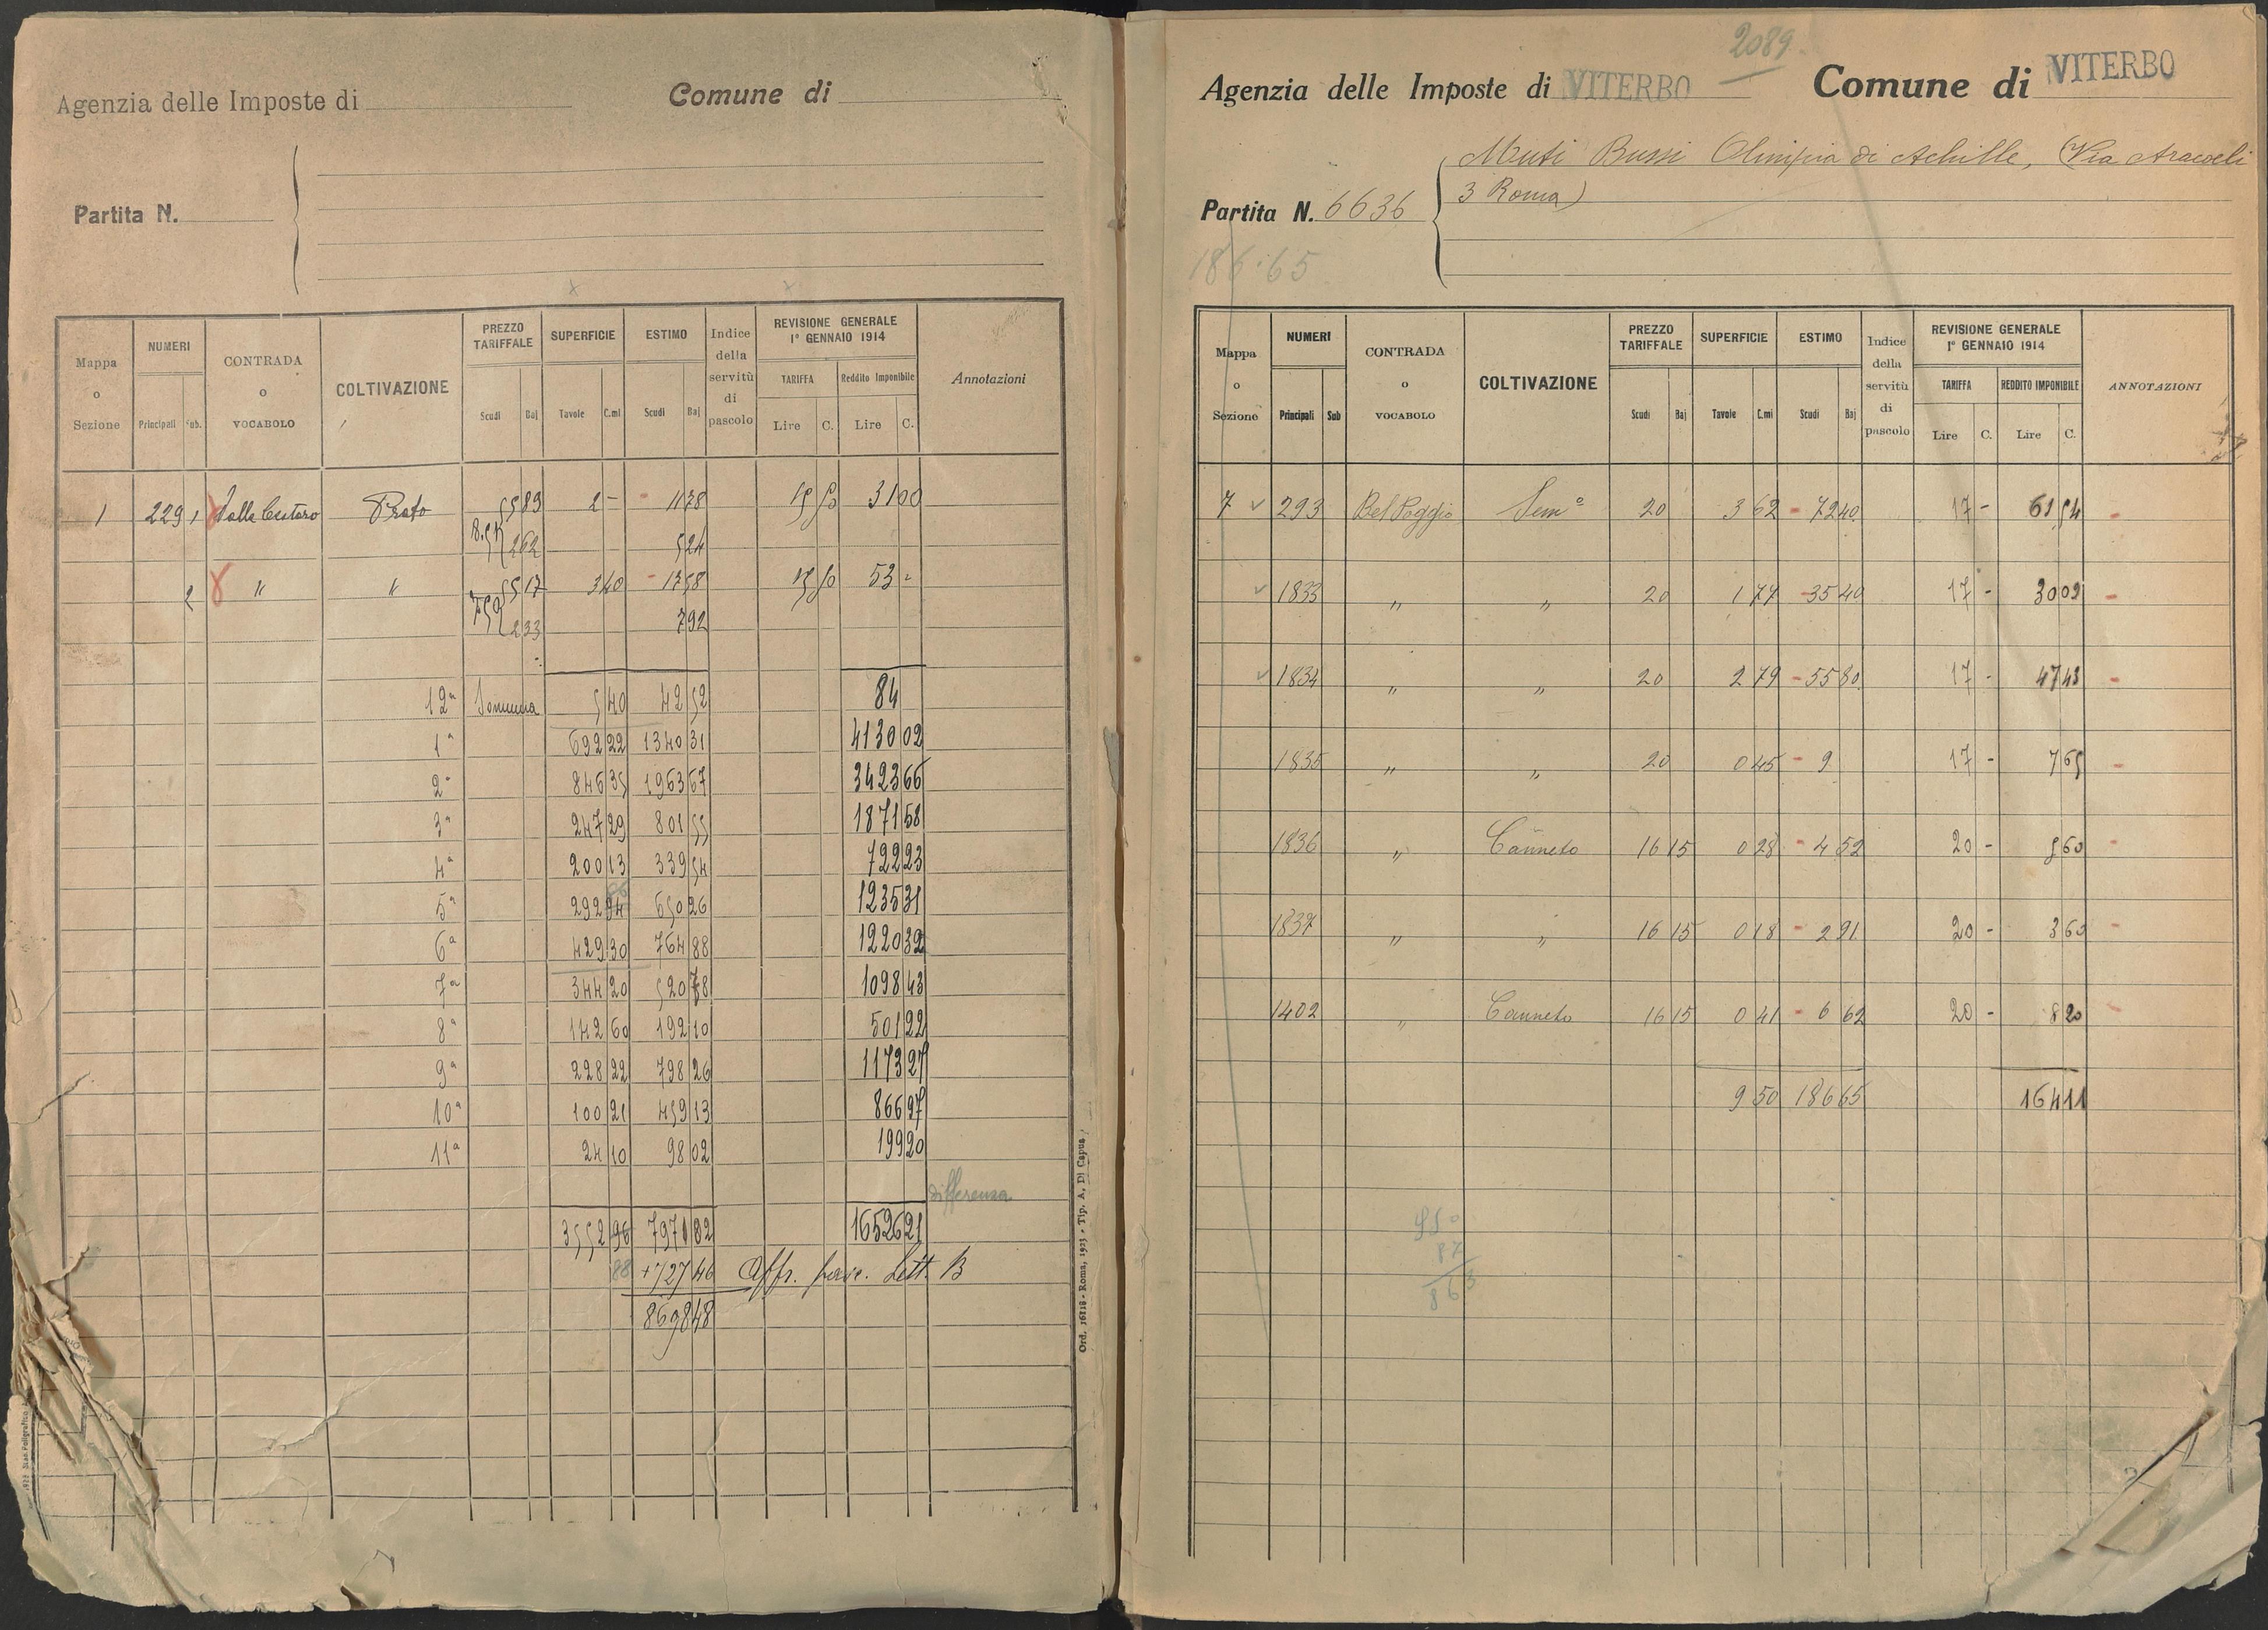 Agenzia delle Imposte di
Comune di
Partita N.
Mappa o Sezione
NUMERI
Principali
Sub.
CONTRADA o VOCABOLO
COLTIVAZIONE
PREZZO TARIFFALE
Scudi
Baj
SUPERFICIE
Tavole
C.mi
ESTIMO
Scudi
Baj
Indice della servitù di pascolo
REVISIONE GENERALE 1° GENNAIO 1914
TARIFFA
Reddito Imponibile
Lire
C.
Lire
C.
Annotazioni
1 229 1 Prato 5 89 2 - 11 78 15 50 31 00
2 62 5 24
2 " " 5 17 3 40 17 58 15 50 53 -
2 33 7 92
12ª Somma 5 40 42 52 84
1ª 692 22 1340 31 4130 02
2ª 846 35 1963 67 3423 66
3ª 247 29 801 55 1871 58
4ª 200 13 339 54 722 23
5ª 292 94 650 26 1235 31
6ª 429 30 764 88 1220 32
7ª 344 20 520 78 1098 43
8ª 142 60 192 10 501 22
9ª 228 22 798 26 1173 27
10ª 100 21 459 13 866 97
11ª 24 10 98 02 199 20
differenza
3552 96 7971 82 16526 21
88 +727 46 Affr. Lett. B
8698 48
Ord. 16818 - Roma, 1923 - Tip. A. Di Capua
2089.
Agenzia delle Imposte di VITERBO
Comune di VITERBO
Muti Bussi Olimpia di Achille, (Via Aracoeli
3 Roma)
Partita N. 6636
186.65
Mappa o Sezione
NUMERI
Principali
Sub
CONTRADA o VOCABOLO
COLTIVAZIONE
PREZZO TARIFFALE
Scudi
Baj
SUPERFICIE
Tavole
C.mi
ESTIMO
Scudi
Baj
Indice della servitù di pascolo
REVISIONE GENERALE 1° GENNAIO 1914
TARIFFA
REDDITO IMPONIBILE
Lire
C.
Lire
C.
ANNOTAZIONI
7 293 Bel Poggio Sem° 20 3 62 - 72 40 17 - 61 54 -
1833 " " 20 1 77 - 35 40 17 - 30 09 -
1834 " " 20 2 79 - 55 80 17 - 47 43 -
1835 " " 20 0 45 - 9 17 - 7 65 -
1836 " Canneto 16 15 0 28 - 4 52 20 - 5 60 -
1837 " " 16 15 0 18 - 2 91 20 - 3 60 -
1402 " Canneto 16 15 0 41 - 6 62 20 - 8 20 -
9 50 186 65 164 11
950
87
863